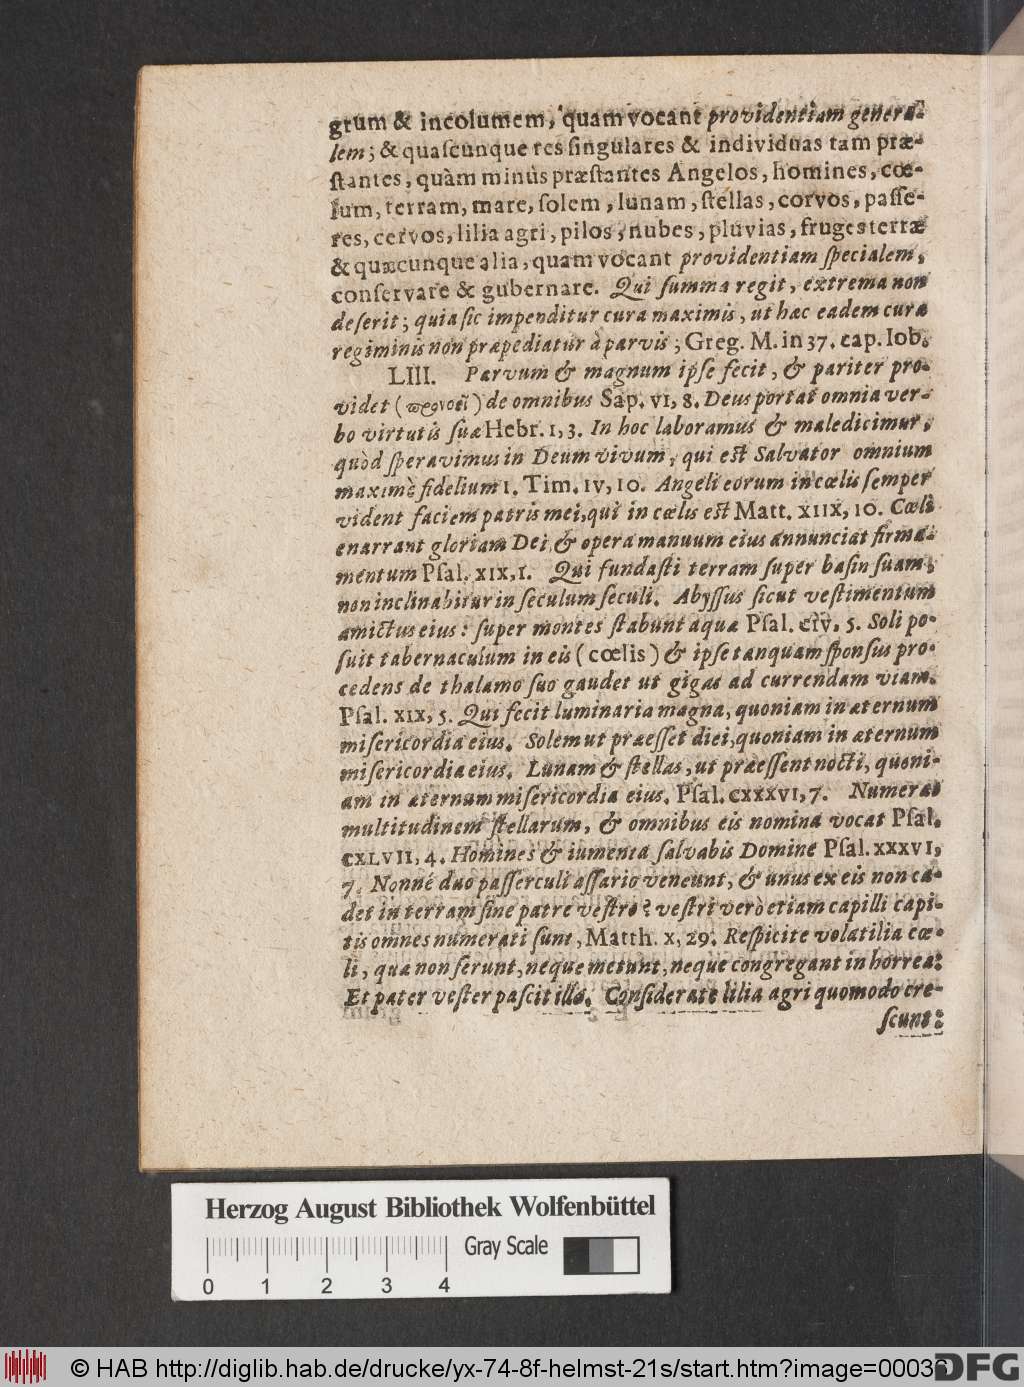 grum & incolumem, quam vocant providentiam genera-
lem; & quaſcunque res ſingulares & individuas tam præ-
ſtantes, quàm minùs præſtantes Angelos, homines, cœ-
lum, terram, mare, ſolem, lunam, ſtellas, corvos, paſſe-
res, cervos, lilia agri, pilos, nubes, pluvias, fruges terræ
& quæcunque alia, quam vocant providentiam ſpecialem,
conſervare & gubernare. Qui ſumma regit, extrema non
deſerit; quia ſic impenditur cura maximis, ut hæc eadem cura
regiminis non præpediatur à parvis; Greg. M. in 37. cap. Iob.
LIII. Parvum & magnum ipſe fecit, & pariter pro-
videt (προνοεῖ) de omnibus Sap. VI, 8. Deus portat omnia ver-
bo virtutis ſuæ Hebr. 1, 3. In hoc laboramus & maledicimur,
quòd ſperavimus in Deum vivum, qui eſt Salvator omnium
maximè fidelium 1. Tim. IV, 10. Angeli eorum in cœlis ſemper
vident faciem patris mei, qui in cœlis eſt Matt. XIIX, 10. Cœli
enarrant gloriam Dei & opera manuum eius annunciat firma-
mentum Pſal. XIX, 1. Qui fundaſti terram ſuper baſin ſuam,
non inclinabitur in ſeculum ſeculi. Abyſſus ſicut veſtimentum
amictus eius: ſuper montes ſtabunt aquæ Pſal. CIV, 5. Soli po-
ſuit tabernaculum in eis (cœlis) & ipſe tanquam ſponſus pro-
cedens de thalamo ſuo gaudet ut gigas ad currendam viam.
Pſal. XIX, 5. Qui fecit luminaria magna, quoniam in æternum
miſericordia eius. Solem ut præeſſet diei, quoniam in æternum
miſericordia eius. Lunam & ſtellas, ut præeſſent nocti, quoni-
am in æternum miſericordia eius. Pſal. CXXXVI, 7. Numerat
multitudinem ſtellarum, & omnibus eis nomina vocat Pſal.
CXLVII, 4. Homines & iumenta ſalvabis Domine Pſal. XXXVI,
7. Nonné duo paſſerculi aſſario veneunt, & unus ex eis non ca-
det in terram ſine patre veſtro? veſtri verò etiam capilli capi-
tis omnes numerati ſunt, Matth. X, 29. Reſpicite volatilia cœ-
li, quæ non ſerunt, neque metunt, neque congregant in horrea:
Et pater veſter paſcit illa. Conſiderate lilia agri quomodo cre-
ſcunt:
Herzog August Bibliothek Wolfenbüttel
Gray Scale
0 1 2 3 4
© HAB http://diglib.hab.de/drucke/yx-74-8f-helmst-21s/start.htm?image=00036
DFG